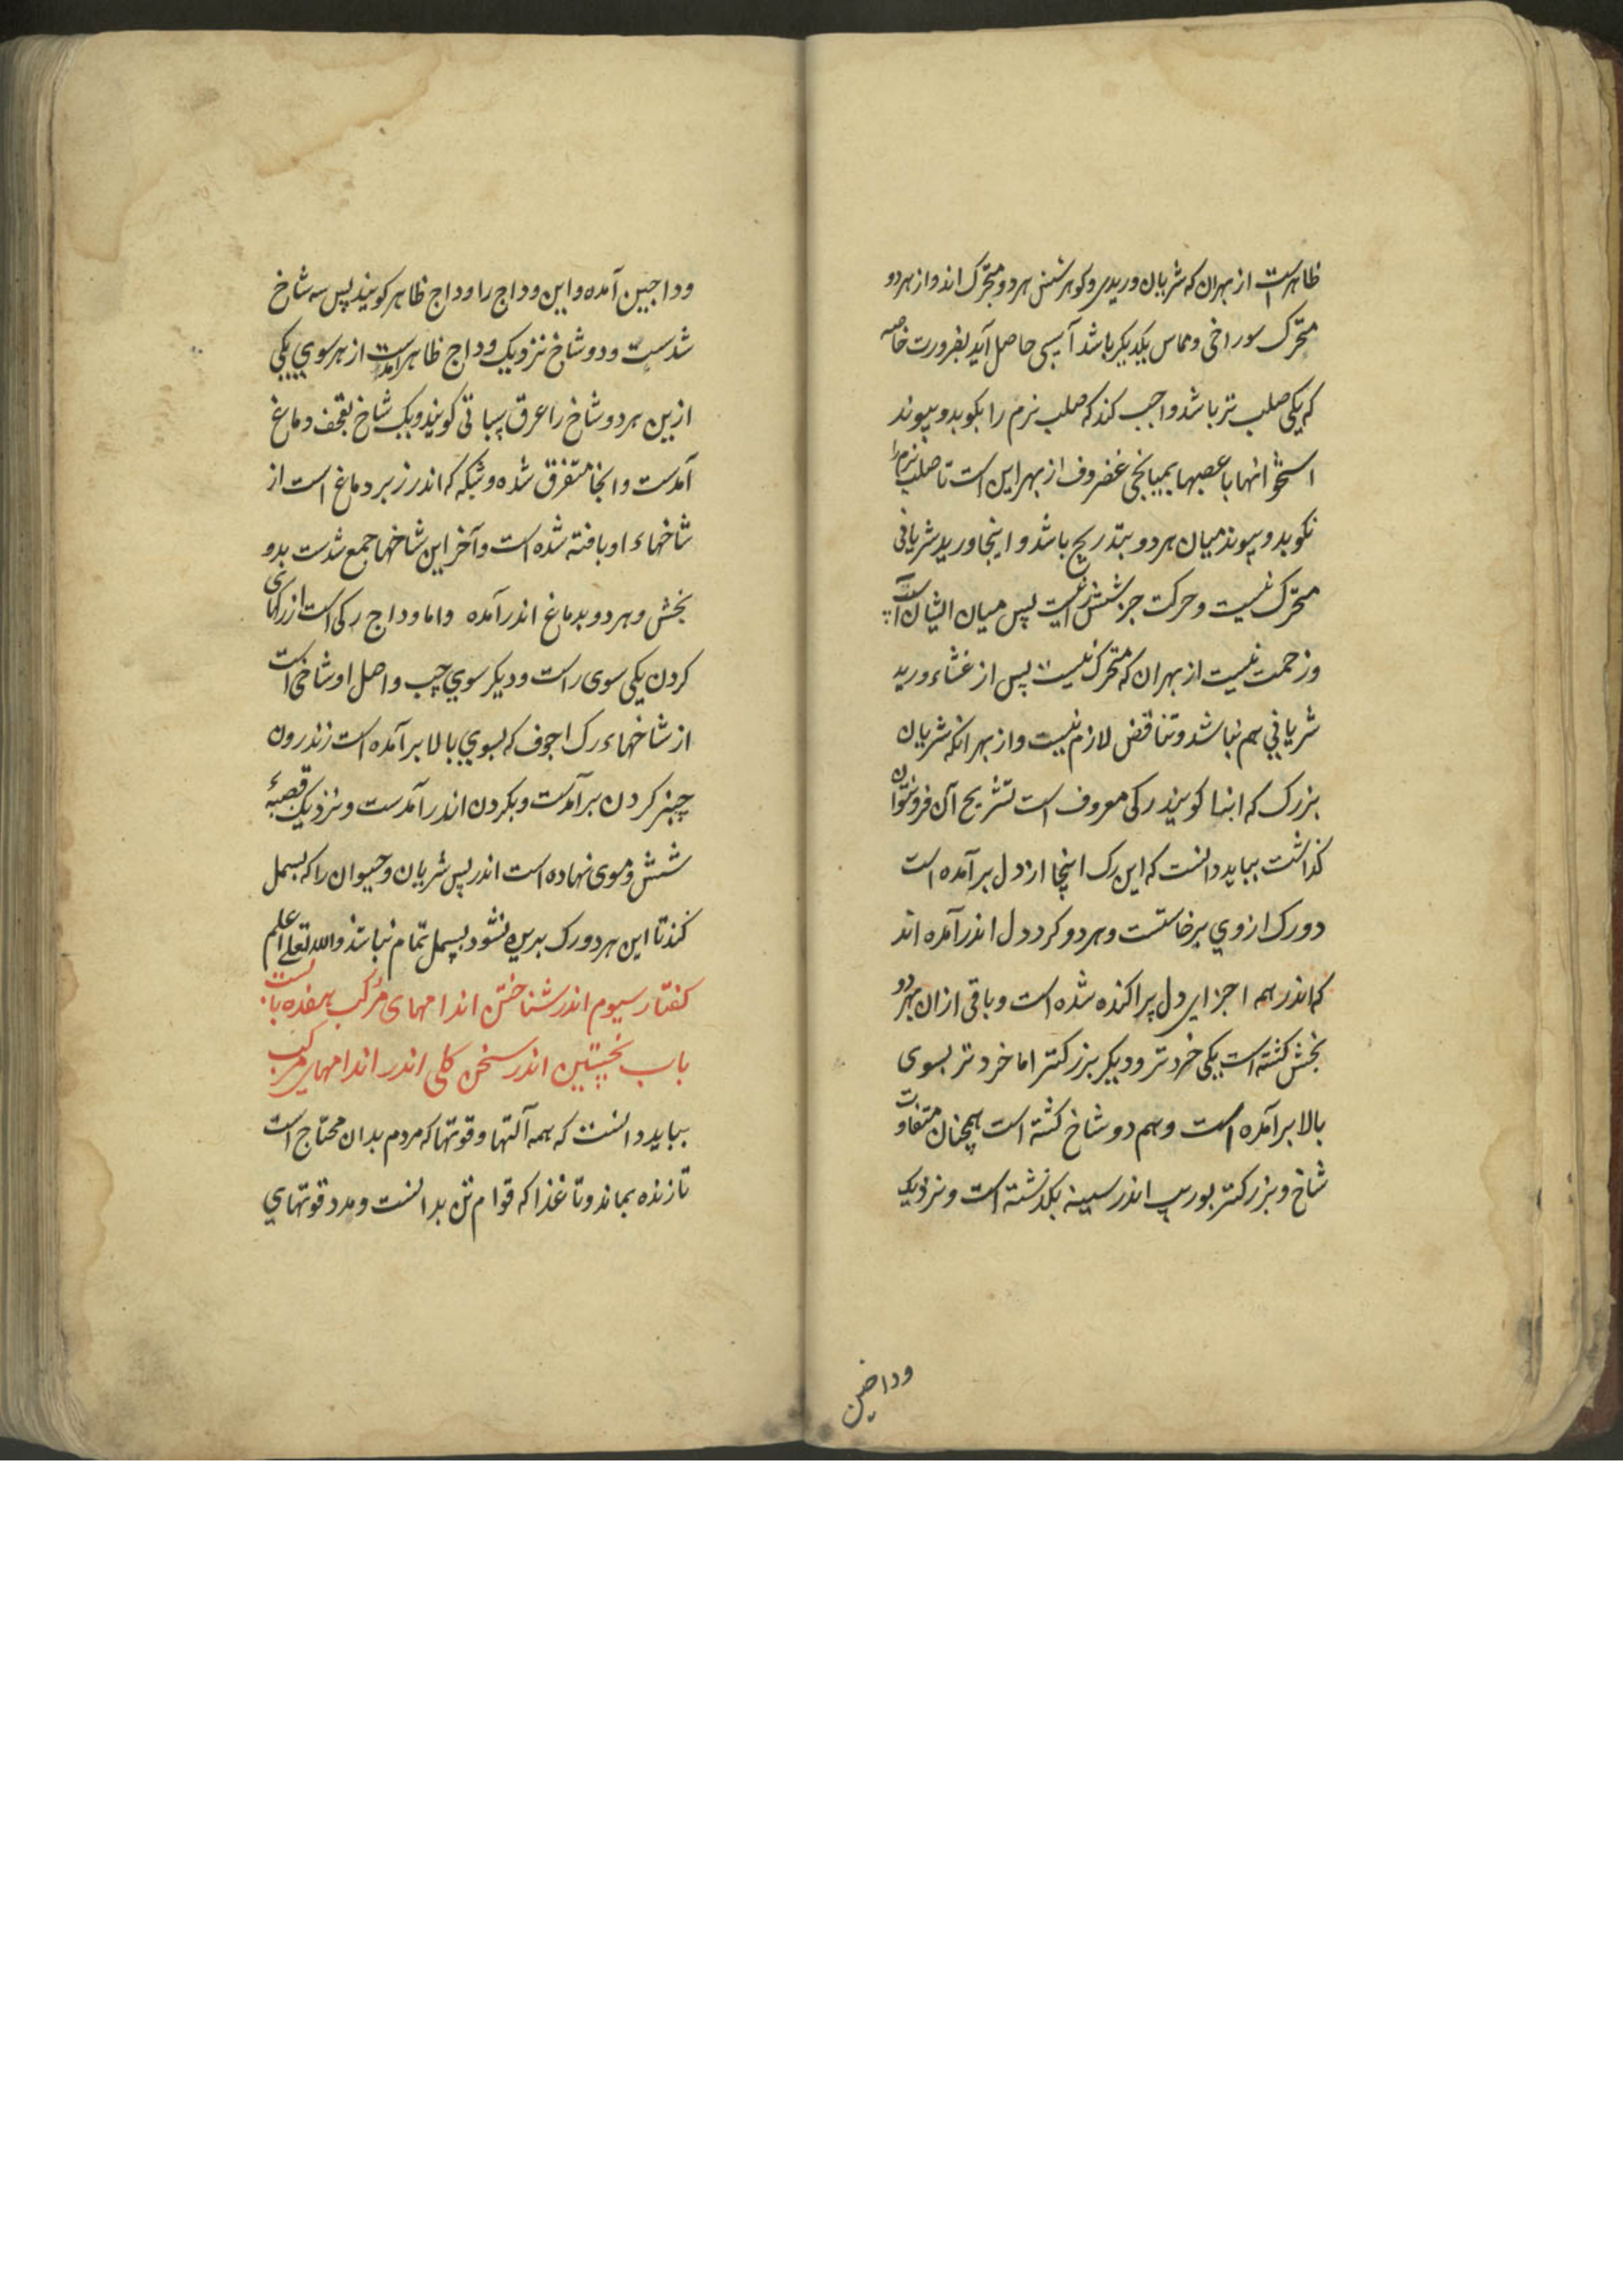 ظاهرست از بهران که شریان وریدی وکوهر شش هر دو متحرک اند واز هر دو
متحرک سوراخی ومماس یکدیکر باشد آسیبی حاصل آید بضرورت خاصه
که یکی صلب تر باشد واجب کند که صلب نرم را بکوبد وپیوند
استخوانها با عصبها بمیانجی غضروف از بهر این است تا صلب نرم را
نکوبد وپیوند میان هر دو بتدریج باشد واینجا ورید شریانی
متحرک نیست وحرکت جز شش را نیست پس میان ایشان
وزحمت نیست از بهران که متحرک نیست پس از غشاء ورید
شریانی هم نباشد وتناقض لازم نیست واز بهر انکه شریان
بزرک که ابنها کویند رکی معروف است تشریح آن فرو نتوان
کذاشت بباید دانست که این رک اینجا از دل برآمده است
دو رک از وی برخاستست وهر دو کرد دل اندر آمده اند
که اندر همه اجزای دل پراکنده شده است وباقی از ان بهر دو
بخش کشته است یکی خردتر ودیکر بزرکتر اما خردتر بسوی
بالا برآمده است وهم دو شاخ کشته است همچنان متفاوت
شاخ وبزرکتر بورب اندر سینه بکذشته است ونزدیک
وداجین
وداجین آمده واین وداج را وداج ظاهر کویند پس سه شاخ
شدست ودو شاخ نزدیک وداج ظاهر آمدست از هر سوی یکی
ازین هر دو شاخ را عرق سباتی کویند ویک شاخ بقحف دماغ
آمدست وانجا متفرق شده وشبکه که اندر زیر دماغ است از
شاخهاء او بافته شده است وآخر این شاخها جمع شدست بدو
بخش وهر دو بدماغ اندر آمده واما وداج رکی است از رکهای
کردن یکی سوی راست ودیکر سوی چپ واصل او شاخی است
از شاخهاء رک اجوف که بسوی بالا برآمده است زندرون
چنبر کردن برآمدست وبکردن اندر آمدست ونزدیک قصبۀ
شش وموی نهاده است اندر پس شریان وحیوان را که بسمل
کنند تا این هر دو رک بریده نشود بسمل تمام نباشد والله تعلی اعلم
کفتار سیوم اندر شناختن اندامهای مرکب هفده بابست
باب نخستین اندر سخن کلی اندر اندامهای مرکب
بباید دانست که همه آلتها وقوتها که مردم بدان محتاج است
تا زنده بماند وتا غذا که قوام تن بدانست ومدد قوتهای